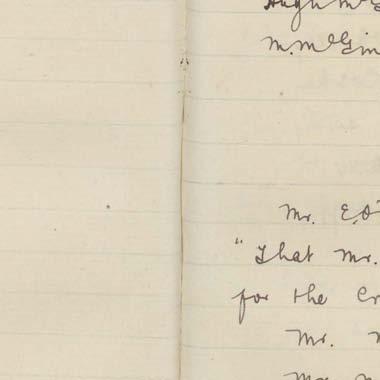 Hugh McG
M. McGin
Mr. E. O'
"That Mr.
for the Cr
Mr.
Mr.